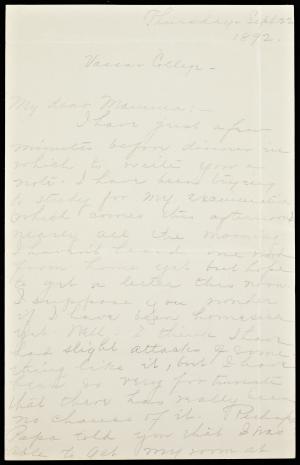 Thursday - Sept 22
1892.
Vassar College -
My dear Mamma: -
I have just a few
minutes before dinner in
which to write you a
note. I have been trying
to study for my examination
which comes this afternoon
nearly all the morning.
I haven't heard one word
from home yet but hope
to get a letter this noon.
I suppose you wonder
if I have been homesick
yet. Well - I think I have
had slight attacks of some
thing like it, but I have
been so very fortunate
that there has really been
no chance of it. Perhaps
Papa told you that I was
able to get my room at